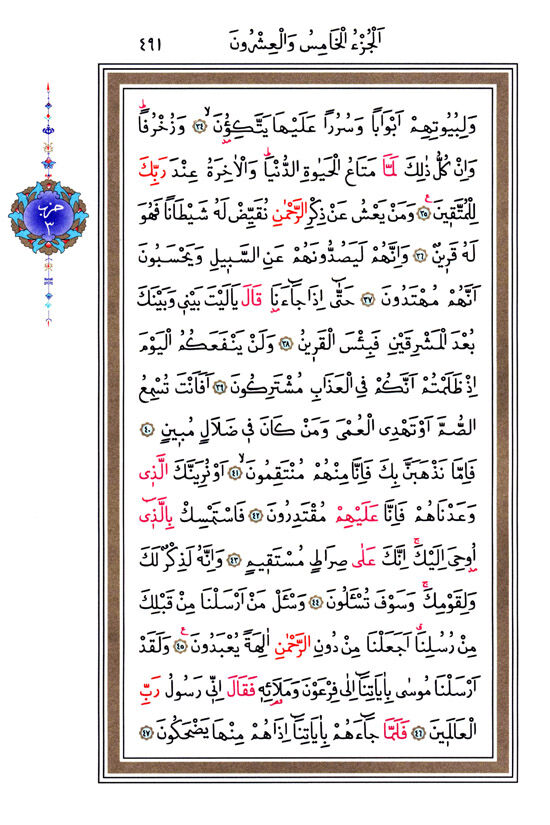 اَلْجُزْءُ الْخَامِسُ وَالْعِشْرُونَ
٤٩١
حزب
٣
وَلِبُيُوتِهِمْ اَبْوَاباً وَسُرُراً عَلَيْهَا يَتَّكِؤُنَۙ ﴿٣٤﴾ وَزُخْرُفاًۜ
وَاِنْ كُلُّ ذٰلِكَ لَمَّا مَتَاعُ الْحَيٰوةِ الدُّنْيَاۜ وَالْاٰخِرَةُ عِنْدَ رَبِّكَ
لِلْمُتَّقٖينَࣖ ﴿٣٥﴾ وَمَنْ يَعْشُ عَنْ ذِكْرِ الرَّحْمٰنِ نُقَيِّضْ لَهُ شَيْطَاناً فَهُوَ
لَهُ قَرٖينٌ ﴿٣٦﴾ وَاِنَّهُمْ لَيَصُدُّونَهُمْ عَنِ السَّبٖيلِ وَيَحْسَبُونَ
اَنَّهُمْ مُهْتَدُونَ ﴿٣٧﴾ حَتّٰٓى اِذَا جَٓاءَنَا قَالَ يَالَيْتَ بَيْنٖى وَبَيْنَكَ
بُعْدَ الْمَشْرِقَيْنِ فَبِئْسَ الْقَرٖينُ ﴿٣٨﴾ وَلَنْ يَنْفَعَكُمُ الْيَوْمَ
اِذْ ظَلَمْتُمْ اَنَّكُمْ فِى الْعَذَابِ مُشْتَرِكُونَ ﴿٣٩﴾ اَفَاَنْتَ تُسْمِعُ
الصُّمَّ اَوْ تَهْدِى الْعُمْىَ وَمَنْ كَانَ فٖى ضَلَالٍ مُبٖينٍ ﴿٤٠﴾
فَاِمَّا نَذْهَبَنَّ بِكَ فَاِنَّا مِنْهُمْ مُنْتَقِمُونَۙ ﴿٤١﴾ اَوْ نُرِيَنَّكَ الَّذٖى
وَعَدْنَاهُمْ فَاِنَّا عَلَيْهِمْ مُقْتَدِرُونَ ﴿٤٢﴾ فَاسْتَمْسِكْ بِالَّذٖٓى
اُوحِىَ اِلَيْكَۚ اِنَّكَ عَلٰى صِرَاطٍ مُسْتَقٖيمٍ ﴿٤٣﴾ وَاِنَّهُ لَذِكْرٌ لَكَ
وَلِقَوْمِكَۚ وَسَوْفَ تُسْـَٔلُونَ ﴿٤٤﴾ وَسْـَٔلْ مَنْ اَرْسَلْنَا مِنْ قَبْلِكَ
مِنْ رُسُلِنَا اَجَعَلْنَا مِنْ دُونِ الرَّحْمٰنِ اٰلِهَةً يُعْبَدُونَࣖ ﴿٤٥﴾ وَلَقَدْ
اَرْسَلْنَا مُوسٰى بِاٰيَاتِنَٓا اِلٰى فِرْعَوْنَ وَمَلَا۬ئِهٖ فَقَالَ اِنّٖى رَسُولُ رَبِّ
الْعَالَمٖينَ ﴿٤٦﴾ فَلَمَّا جَٓاءَهُمْ بِاٰيَاتِنَٓا اِذَا هُمْ مِنْهَا يَضْحَكُونَ ﴿٤٧﴾